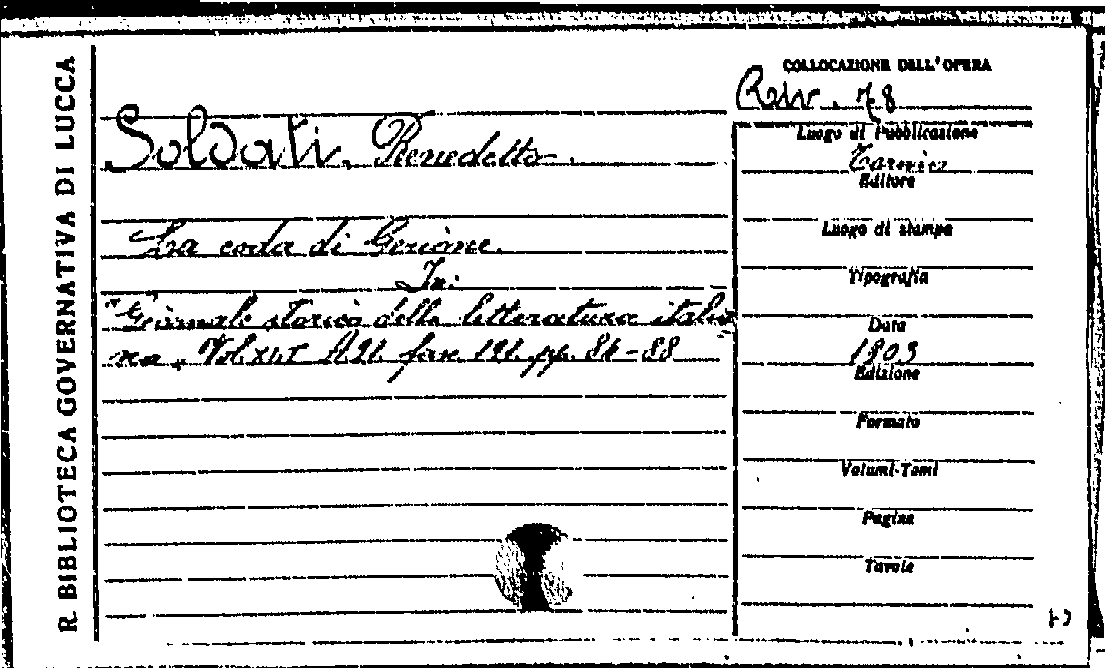 R. BIBLIOTECA GOVERNATIVA DI LUCCA
COLLOCAZIONE DELL'OPERA
Riv. 78
Soldati, Benedetto.
La coda di Gerione.
In:
"Giornale storico della letteratura italia
na„ Vol. XLI A. 21. fasc 121. pp. 84-88
Luogo di Pubblicazione
Torino
Editore
Luogo di stampa
Tipografia
Data
1903
Edizione
Formato
Volumi-Tomi
Pagine
Tavole